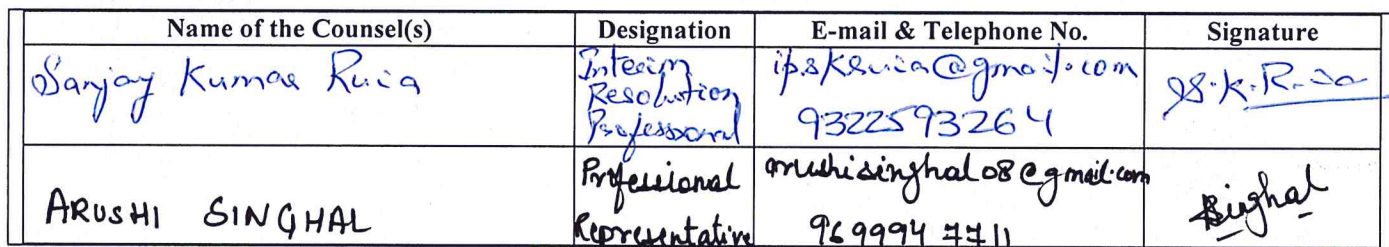 Name of the Counsel(s) Designation E-mail & Telephone No. Signature
Sanjay Kumar Ruia Interim Resolution Professional ip.skruia@gmail.com 9322593264 S.K.Ruia
ARUSHI SINGHAL Professional Representative arushisinghal08@gmail.com 9699947711 Singhal